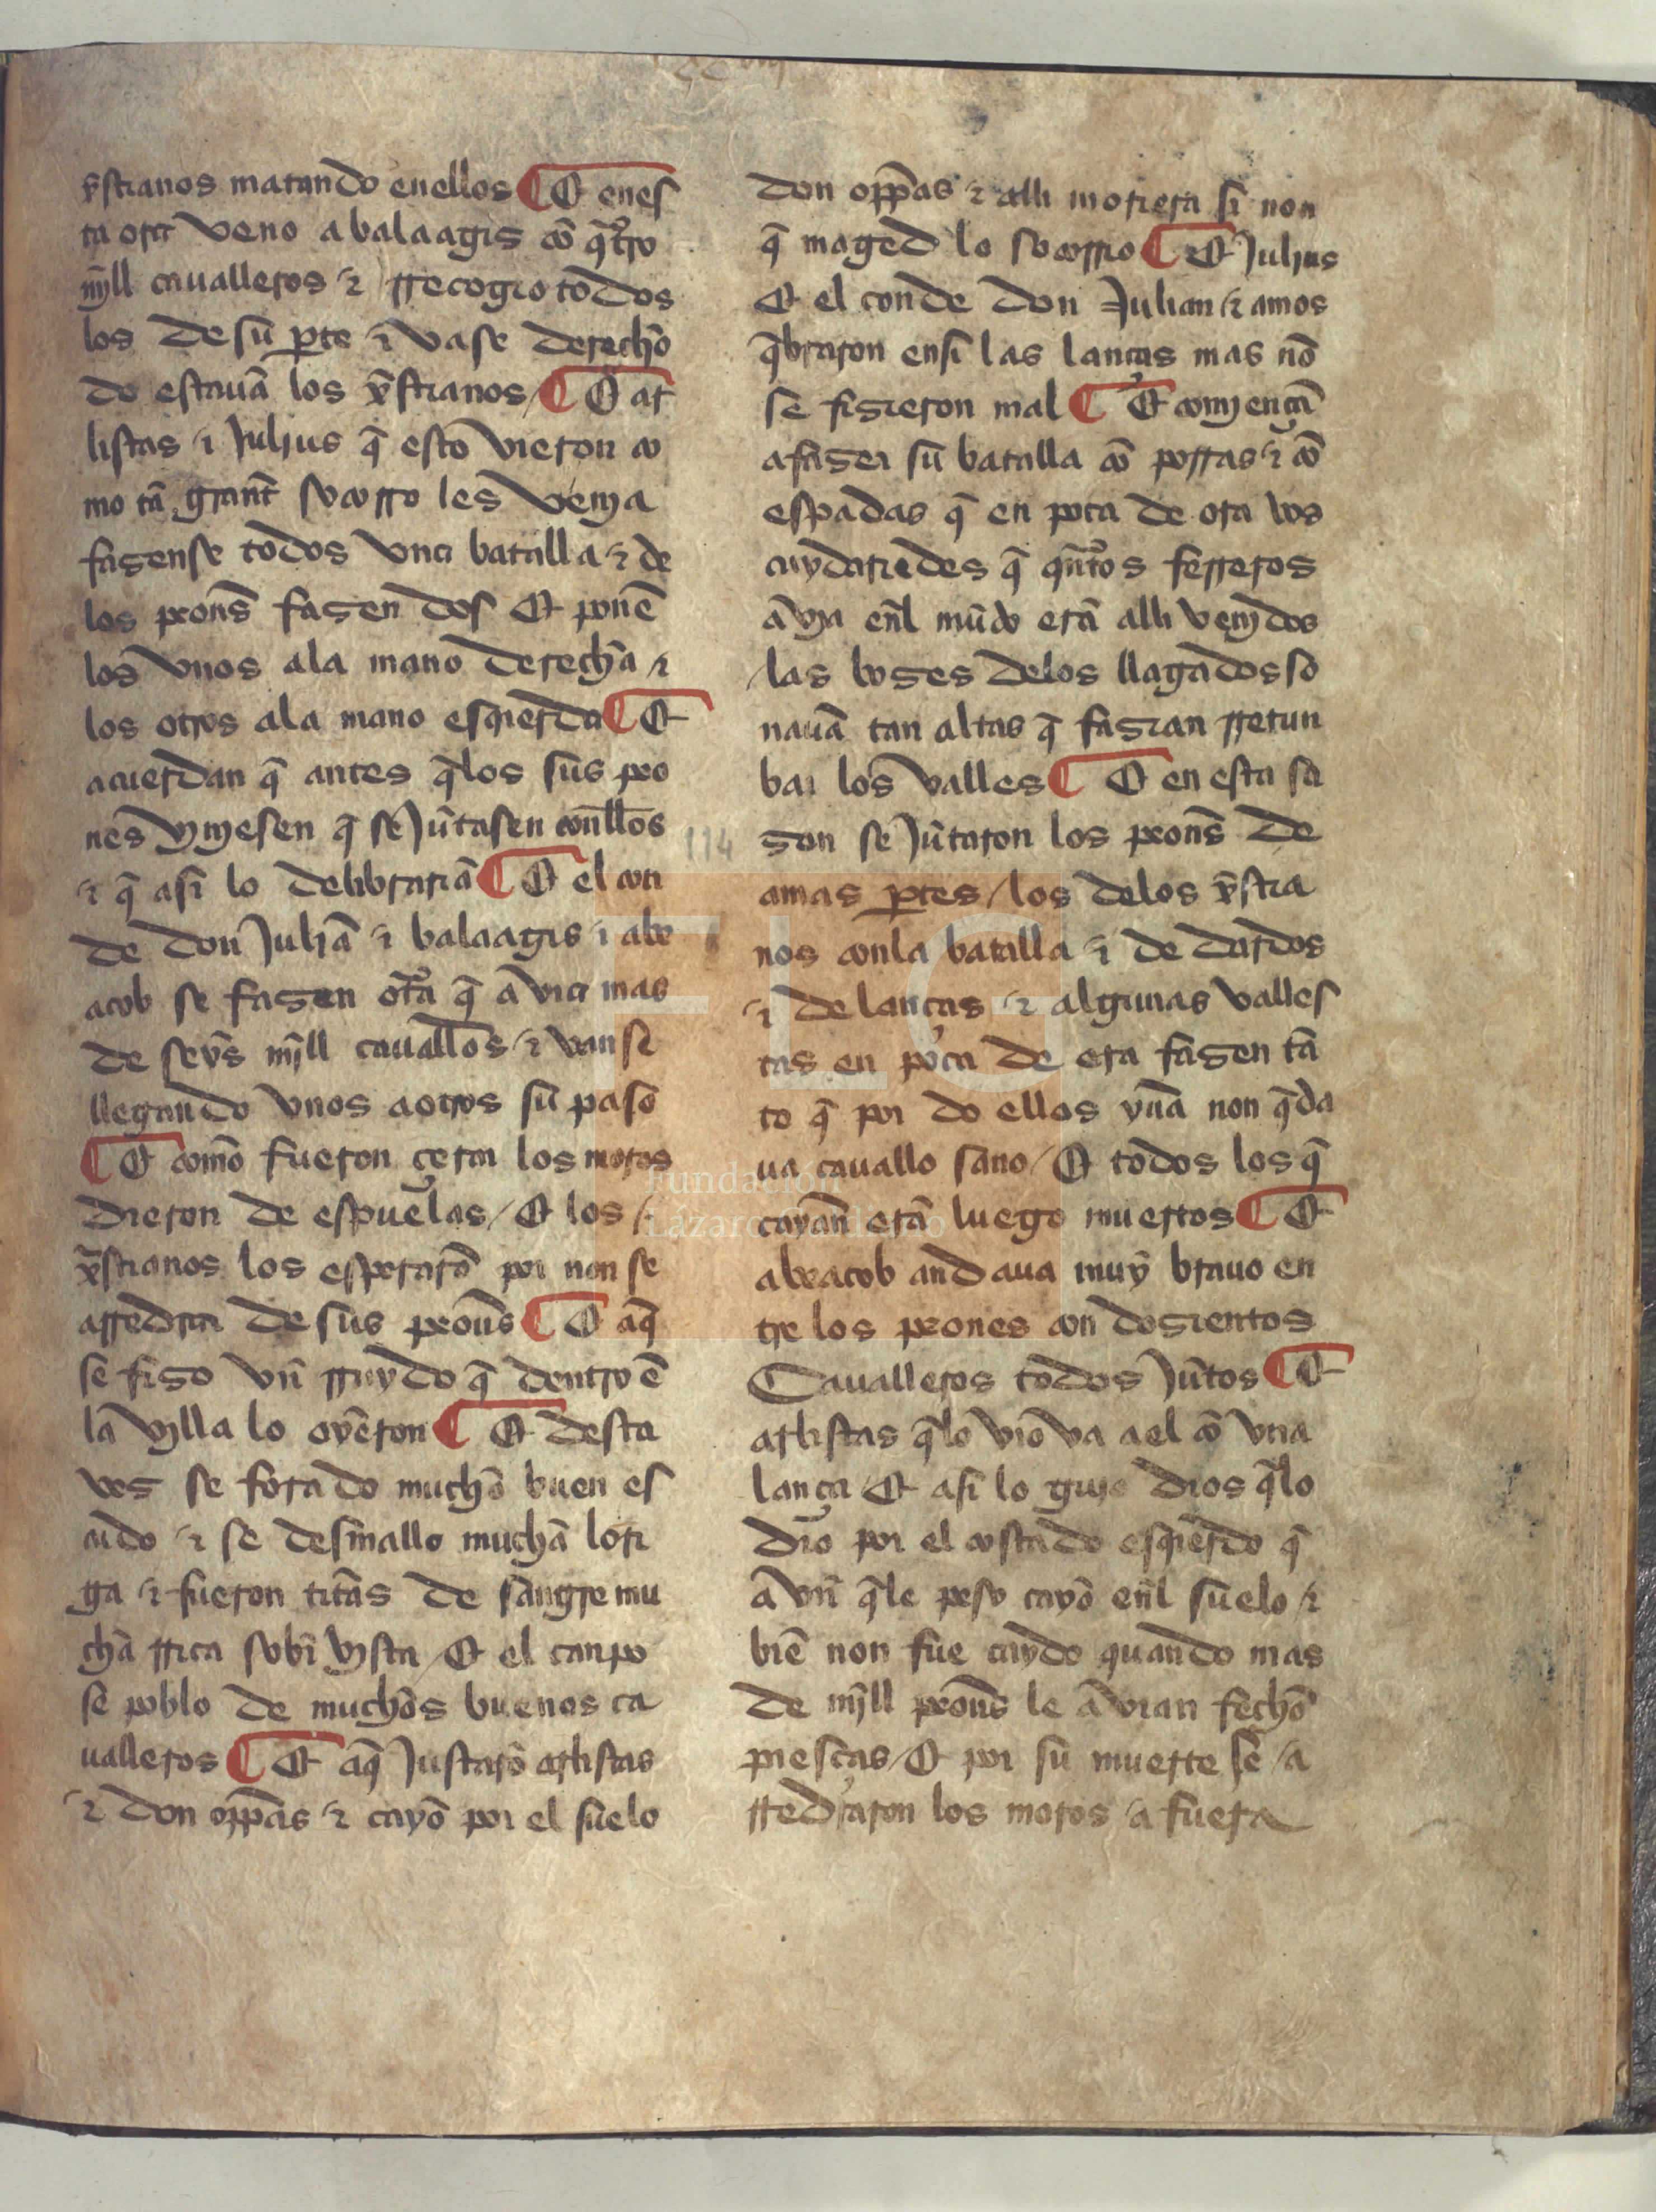 xp̃stianos matando enellos ¶ Et enes
ta ora veno abalaagis cõ q̃tro
mjll caualleros ⁊ rrecogio todos
los de su p̱te ⁊ vase derecho
do estauã los xp̃stianos / ¶ Et ar
listas ⁊ Julius q̃ esto vieron co
mo tã grant socorro les venja
fazense todos vna batalla ⁊ de
los peons̃ fazen dos Et ponẽ
los vnos ala mano derecha ⁊
los otros ala mano esquierda ¶ Et
acuerdan q̃ antes q̃los sus peo
nes vynjesen q̃ se Jũtasen conllos
⁊ q̃ asi lo delibrariã ¶ Et el con
de don Juliã ⁊ balaagis ⁊ abe
acob se fazen otra q̃ avia mas
de seys mjll cauallos ⁊ van se
llegando vnos aotros su paso
¶ Et como fueron çerca los moros
dieron de espuelas / Et los /
xp̃stianos los esperarõ por non se
arredrar de sus peons̃ ¶ Et aq̃
se fizo vñ rruydo q̃ dentro ẽ
la vylla lo oyeron ¶ Et desta
vez se forado mucho buen es
cudo ⁊ se desmallo mucha lori
ga ⁊ fueron titãs de sangre mu
cha rrica sobr̃ vysta / Et el canpo
se poblo de muchos buenos ca
ualleros ¶ Et aq̃ Justarõ arlistas
⁊ don oppas ⁊ cayo por el suelo
don oppas ⁊ alli moriera si non
q̃ maged lo socorrio ¶ Et Julius
Et el conde don Julian ⁊ amos
q̃braron ensi las lanças mas nõ
se fizieron mal ¶ Et comjençã
afazer su batalla cõ porras ⁊ cõ
espadas q̃ en poca de ora vos
cuydariedes q̃ quãtos ferreros
avya enl mũdo erã alli venjdos
las vozes delos llagados so
nauã tan altas q̃ fazian rretun
bar los valles ¶ Et en esta sa
zon se Jũtaron los peons̃ de
amas p̱tes / los delos xp̃stia
nos conla batalla ⁊ de dardos
⁊ de lanças ⁊ algunas valles
tas en poca de ora fazen tã
to q̃ por do ellos yuã non q̃da
ua cauallo sano / Et todos los q̃
cayan erã luego muertos ¶ Et
abeacob andaua muy brauo en
tre los peones con dozientos
Caualleros todos Jũtos ¶ Et
arlistas q̃lo vio va a el cõ vna
lança / Et asi lo guio dios q̃lo
dio por el costado esquierdo q̃
avñ q̃le peso cayo enl suelo ⁊
biẽ non fue caydo quando mas
de mjll peons̃ le avian fecho
piesças / Et por su muerte se / a
rredraron los moros / a fuera
114
FLG
Fundación
Lázaro Galdiano